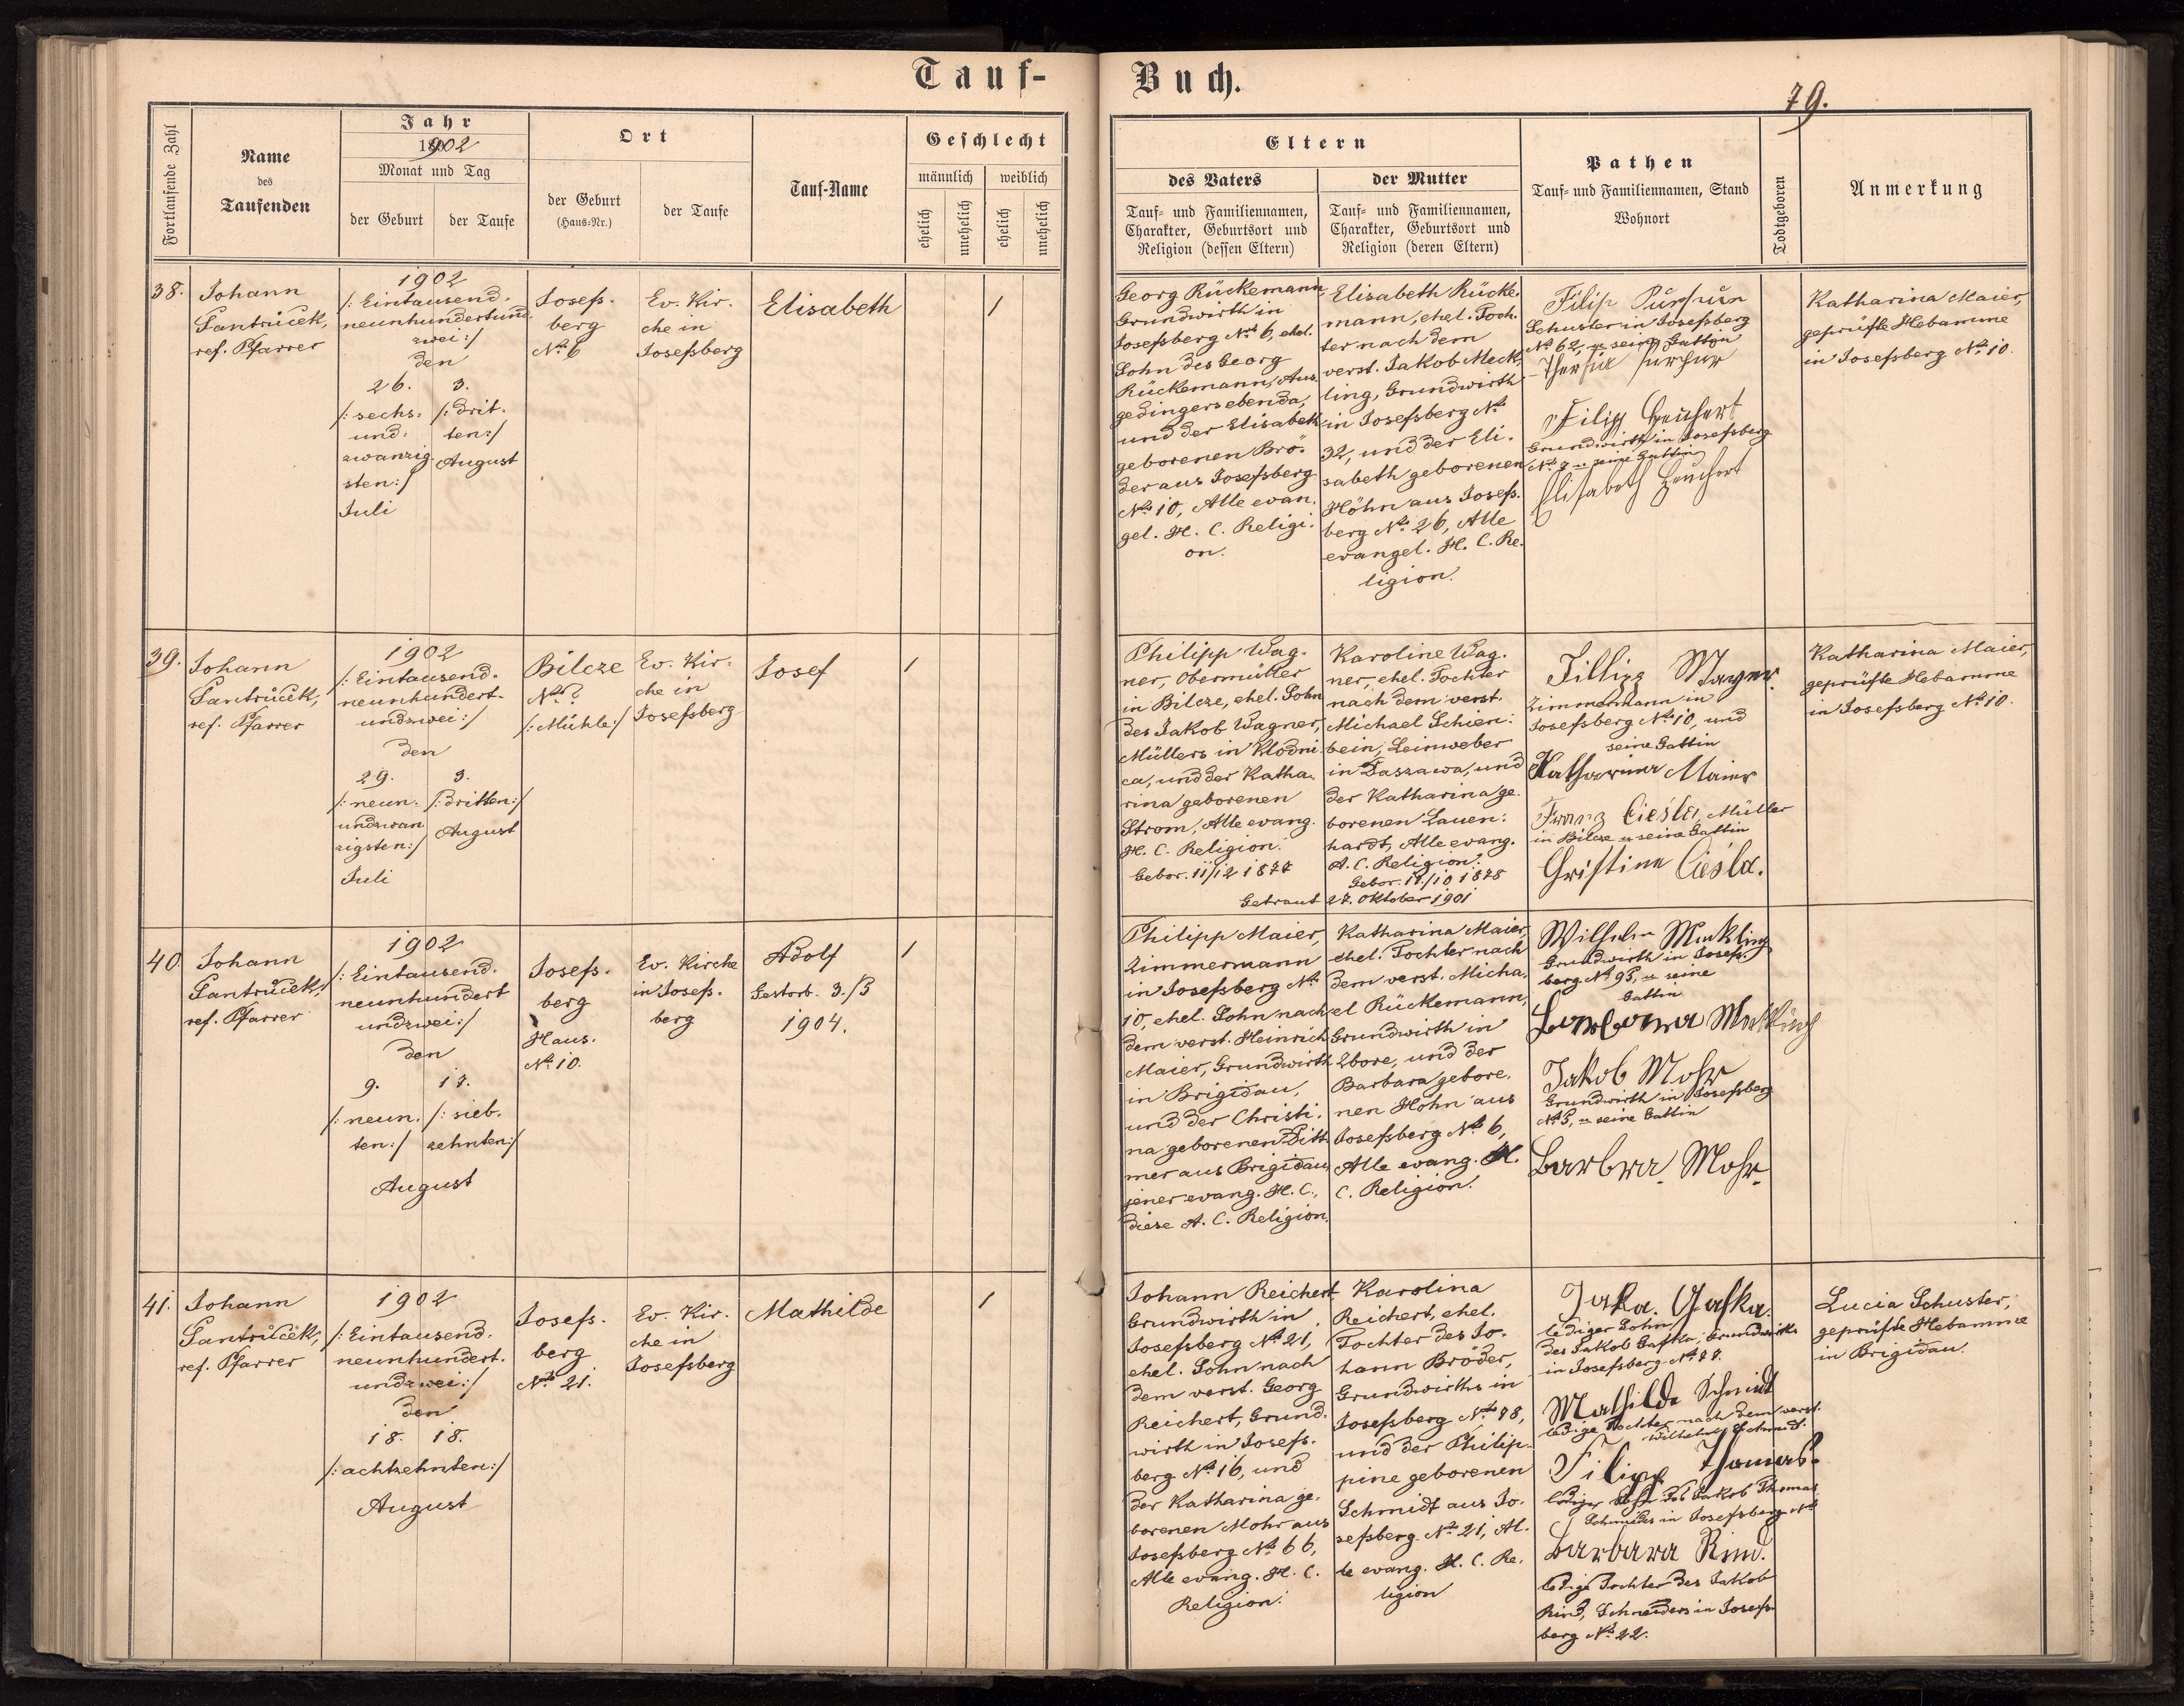 Tauf-
Buch.
79.
Fortlaufende Zahl
Name
des
Taufenden
Jahr
1902
Monat und Tag
der Geburt
der Taufe
Ort
der Geburt
(Haus-Nr.)
der Taufe
Tauf-Name
Geschlecht
männlich
weiblich
ehelich
unehelich
ehelich
unehelich
Eltern
des Vaters
Tauf- und Familiennamen,
Charakter, Geburtsort und
Religion (dessen Eltern)
der Mutter
Tauf- und Familiennamen,
Charakter, Geburtsort und
Religion (deren Eltern)
Pathen
Tauf- und Familiennamen, Stand
Wohnort
Todtgeboren
Anmerkung
38.
Johann
Santrůček,
ref. Pfarrer
1902
/: Eintausend-
neunhundertund-
zwei :/
den
26.
/: sechs-
und-
zwanzig-
sten :/
Juli
3.
/: drit-
ten :/
August
Josefs-
berg
No 6
Ev. Kir-
che in
Josefsberg
Elisabeth
1
Georg Rückemann,
Grundwirth in
Josefsberg No 6, ehel.
Sohn des Georg
Rückemann, Aus-
gedingers ebenda,
und der Elisabeth
geborenen Brö-
der aus Josefsberg
No 10, Alle evan-
gel. H. C. Religi-
on.
Elisabeth Rücke-
mann, ehel. Toch-
ter nach dem
verst. Jakob Meck-
ling, Grundwirth
in Josefsberg No
32, und der Eli-
sabeth geborenen
Höhn aus Josefs-
berg No 26, Alle
evangel. H. C. Re-
ligion.
Filip
Schuster in Josefsberg
No 62, u seine Gattin
Filipp Heuchert
Grundwirth in Josefsberg
No 7 u seine Gattin
Elisabeth Heuchert
Katharina Maier,
geprüfte Hebamme
in Josefsberg No 10.
39.
Johann
Santrůček,
ref. Pfarrer
1902
/: Eintausend-
neunhundert-
undzwei :/
den
29.
/: neun-
undzwan
zigsten :/
Juli
3.
/: dritten :/
August
Bilcze
No ?
/: Mühle :/
Ev. Kir-
che in
Josefsberg
Josef
1
Philipp Wag-
ner, Obermüller
in Bilcze, ehel. Sohn
des Jakob Wagner,
Müllers in Klodni-
ca, und der Katha-
rina geborenen
Strom, Alle evang.
H. C. Religion.
Gebor. 11/12 1877
Karoline Wag-
ner, ehel. Tochter
nach dem verst.
Michael Schien-
bein, Leinweber
in Daszawa, und
der Katharina ge-
borenen Lauen-
hardt, Alle evang.
A. C. Religion.
Gebor. 11/10 1878
Getraut 27. Oktober 1901
Fillipp Mayer.
Zimmermann in
Josefsberg No 10, und
seine Gattin
Katharina Maier
Franz Cieśla, Müller
in Bilcze u seine Gattin
Christine Cieśla.
Katharina Maier,
geprüfte Hebamme
in Josefsberg No 10.
40.
Johann
Santrůček,
ref. Pfarrer
1902
/: Eintausend-
neunhundert
undzwei :/
den
9.
/: neun-
ten :/
17.
/: sieb-
zehnten :/
August
Josefs-
berg
Haus-
No 10.
Ev. Kirche
in Josefs-
berg
Adolf
Gestorb. 3./3
1904.
1
Philipp Maier,
Zimmermann
in Josefsberg No
10, ehel. Sohn nach
dem verst. Heinrich
Maier, Grundwirth
in Brigidau,
und der Christi-
na geborenen Ditt-
mer aus Brigidau,
jener evang. H. C.,
diese A. C. Religion.
Katharina Maier,
ehel. Tochter nach
dem verst. Micha-
el Rückemann,
Grundwirth in
Ebore, und der
Barbara gebore-
nen Höhn aus
Josefsberg No 6,
Alle evang. H.
C. Religion.
Wilhelm Meckling
Grundwirth in Josefs-
berg No 95, u seine
Gattin
Barbara Meckling
Jakob Mohr
Grundwirth in Josefsberg
No 5, u seine Gattin
Barbra Mohr
41.
Johann
Santrůček,
ref. Pfarrer
1902
/: Eintausend-
neunhundert-
undzwei :/
den
18. 18.
/: achtzehnten :/
August
Josefs-
berg
No 21.
Ev. Kir-
che in
Josefsberg
Mathilde
1
Johann Reichert,
Grundwirth in
Josefsberg No 21,
ehel. Sohn nach
dem verst. Georg
Reichert, Grund-
wirth in Josefs-
berg No 16, und
der Katharina ge-
borenen Mohr aus
Josefsberg No 66,
Alle evang. H. C.
Religion.
Karolina
Reichert, ehel.
Tochter des Jo-
hann Bröder,
Grundwirths in
Josefsberg No 78,
und der Philip-
pine geborenen
Schmidt aus Jo-
sefsberg No 21, Al-
le evang. H. C. Re-
ligion
Jaka. Gafka.
lediger Sohn
des Jakob Gafka, Grundwirths
in Josefsberg No 77.
Mathilde Schmidt
ledige Tochter nach dem verst.
Wilhelm Schmidt.
Filipp Thomas.
lediger Sohn des Jakob Thomas
Schmiedes in Josefsberg No
Barbara Rind.
ledige Tochter des Jakob
Rind, Schneiders in Josefs-
berg No 22.
Lucia Schuster,
geprüfte Hebamme
in Brigidau.